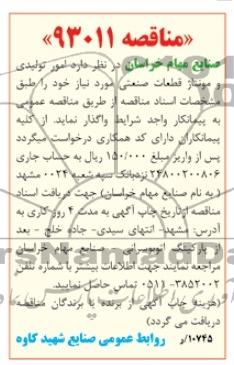 «مناقصه ۹۳۰۱۱»
صنایع مهام خراسان در نظر دارد امور تولیدی
و مونتاژ قطعات صنعتی مورد نیاز خود را طبق
مشخصات اسناد مناقصه از طریق مناقصه عمومی
به پیمانکار واجد شرایط واگذار نماید. از کلیه
پیمانکاران دارای کد همکاری درخواست میگردد
پس از واریز مبلغ ۱۵۰/۰۰۰ ریال به حساب جاری
۲۴۸۰۰۲۰۰۸۰۶ نزدبانک سپه شعبه ۰۰۲۴ مشهد
(به نام صنایع مهام خراسان) جهت دریافت اسناد
مناقصه ازتاریخ چاپ آگهی به مدت ۴ روز کاری به
آدرس: مشهد- انتهای سیدی- جاده خلج - بعد
از پارکینگ اتوبوسرانی - صنایع مهام خراسان
مراجعه نمایند جهت اطلاعات بیشتر با شماره تلفن
۳۸۵۲۰۰۲-۰۵۱۱ تماس حاصل نمایید.
(هزینه چاپ آگهی از برنده یا برندگان مناقصه
دریافت می گردد)
۱۰۷۴۵/و روابط عمومی صنایع شهید کاوه